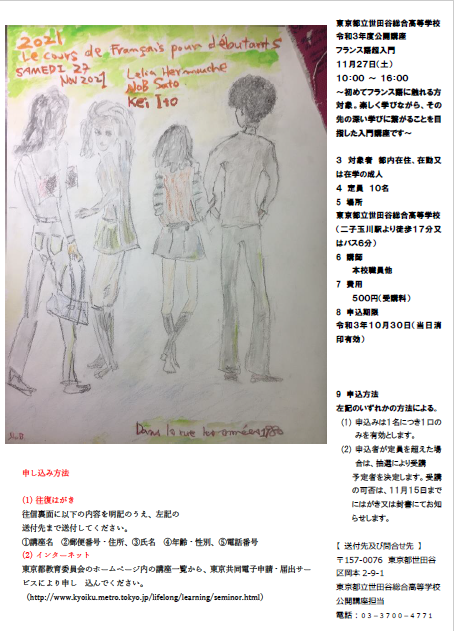 2021
Le cours de Français pour débutants
SAMEDI 27
Nov 2021
Leïla Hermouche
Nob Sato
Kei Ito
Dans la rue les années 1980
東京都立世田谷総合高等学校
令和3年度公開講座
フランス語超入門
11月27日(土)
10:00 ～ 16:00
～初めてフランス語に触れる方
対象。楽しく学びながら、その
先の深い学びに繋がることを目
指した入門講座です～
3 対象者 都内在住、在勤又
は在学の成人
4 定員 10名
5 場所
東京都立世田谷総合高等学校
(二子玉川駅より徒歩17分又
はバス6分)
6 講師
本校職員他
7 費用
500円(受講料)
8 申込期限
令和3年10月30日(当日消
印有効)
9 申込方法
左記のいずれかの方法による。
(1) 申込みは1名につき1口の
みを有効とします。
(2) 申込者が定員を超えた場
合は、抽選により受講
予定者を決定します。受講
の可否は、11月15日まで
にはがき又は封書にてお知
らせします。
【 送付先及び問合せ先 】
〒157-0076 東京都世田谷
区岡本 2-9-1
東京都立世田谷総合高等学校
公開講座担当
電話：03-3700-4771
申し込み方法
(1) 往復はがき
往信裏面に以下の内容を明記のうえ、左記の
送付先まで送付してください。
①講座名 ②郵便番号・住所、③氏名 ④年齢・性別、⑤電話番号
(2) インターネット
東京都教育委員会のホームページ内の講座一覧から、東京共同電子申請・届出サー
ビスにより申し 込んでください。
(http://www.kyoiku.metro.tokyo.jp/lifelong/learning/seminor.html)